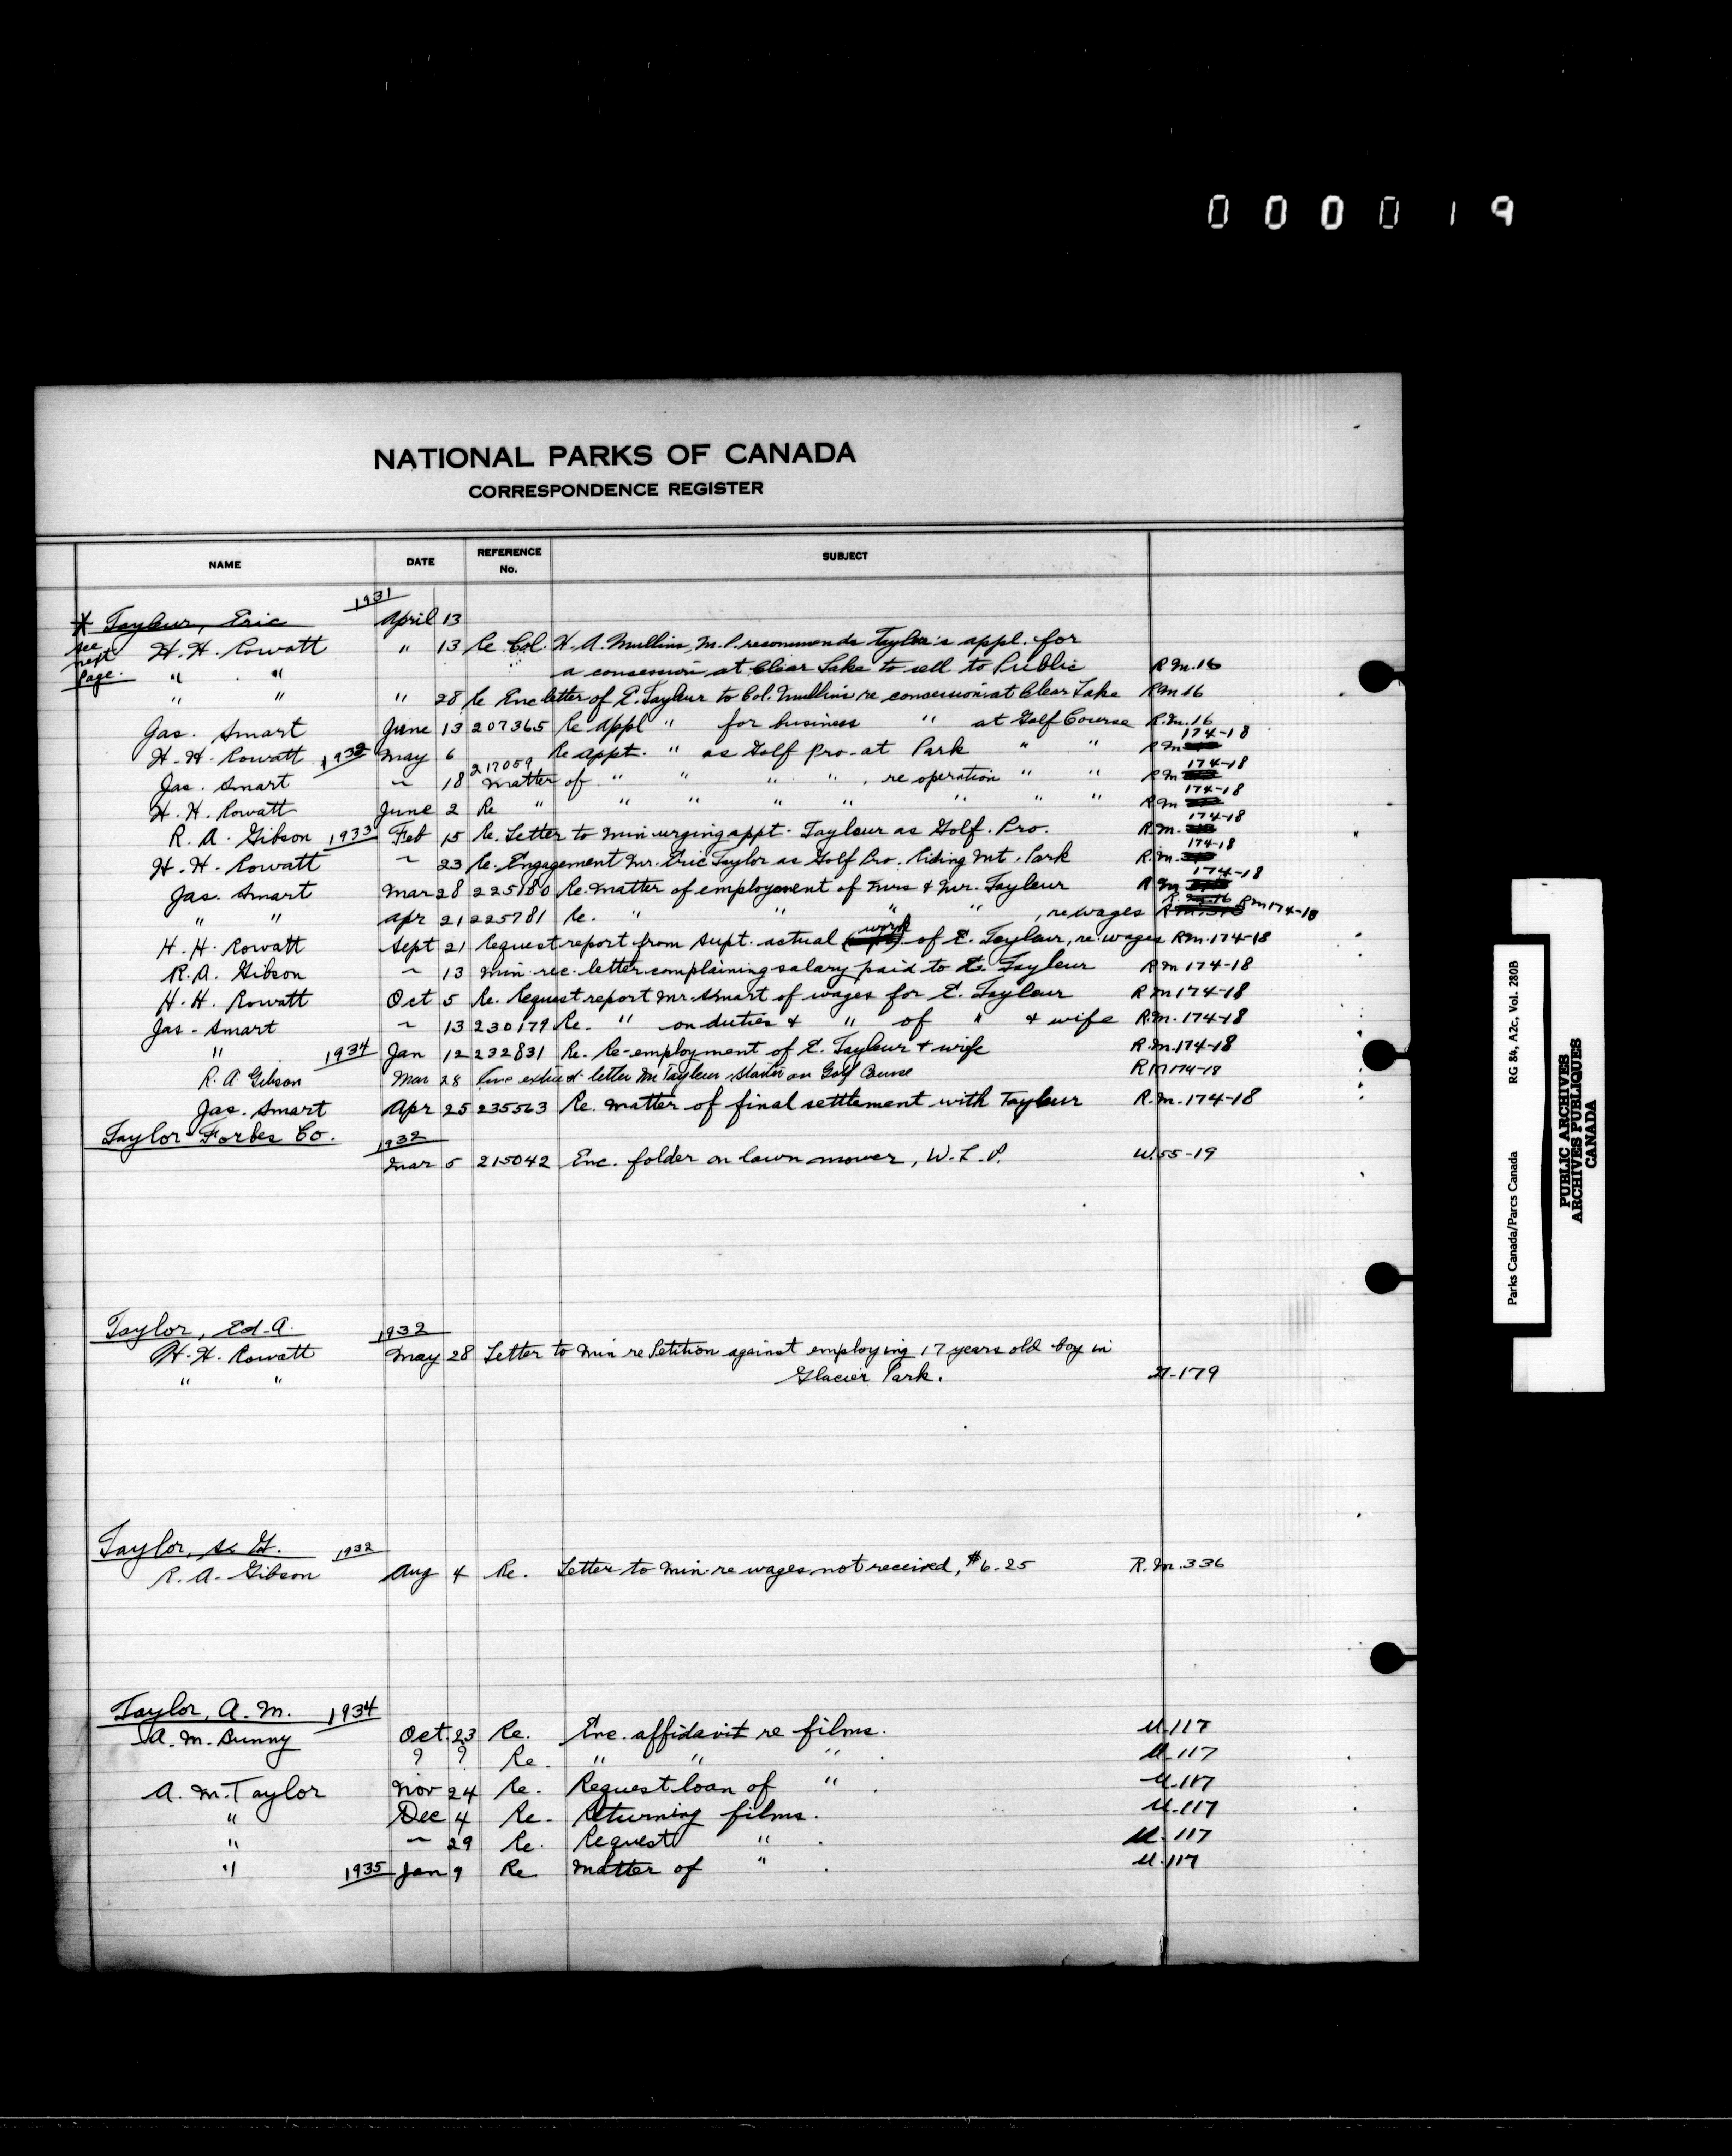 000019
NATIONAL PARKS OF CANADA
CORRESPONDENCE REGISTER
NAME DATE REFERENCE No. SUBJECT
1931
* Tayleur, Eric April 13
see next page. H. H. Rowatt " 13 Re Col. H. A. Mullins, M.P. recommends Tayleur's appl. for
" " a concession at Clear Lake to sell to Public R.M. 16
" " " 28 Re Enc letter of E. Tayleur to Col. Mullins re concession at Clear Lake R.M 16
Jas. Smart June 13 207365 Re appl " for business " at Golf Course R.M. 16
H. H. Rowatt 1932 May 6 Re appt. " as Golf Pro. at Park " " R M 174-18
Jas. Smart ~ 18 217059 Matter of " " " " , re operation " " R M 174-18
H. H. Rowatt June 2 Re " " " " " " " " R M 174-18
R. A. Gibson 1933 Feb 15 Re. Letter to Min urging appt. Tayleur as Golf. Pro. R.M. 174-18
H. H. Rowatt ~ 23 Re. Engagement Mr. Eric Taylor as Golf Pro. Riding Mt. Park R.M. 174-18
Jas. Smart Mar 28 225180 Re. Matter of employment of Mrs & Mr. Tayleur R M 174-18
" " Apr 21 225781 Re. " " " " , re wages R.M. 16 RM 174-18
H. H. Rowatt Sept 21 Request report from Supt. actual work of E. Tayleur, re wages R.M. 174-18
R. A. Gibson ~ 13 Min. rec. letter complaining salary paid to E. Tayleur R M 174-18
H. H. Rowatt Oct 5 Re. Request report Mr. Smart of wages for E. Tayleur R M 174-18
Jas. Smart ~ 13 230179 Re. " on duties & " of " & wife R.M. 174-18
" 1934 Jan 12 232831 Re. Re-employment of E. Tayleur & wife R.M. 174-18
R. A Gibson Mar 28 letter Mr Tayleur on Golf Course R M 174-18
Jas. Smart Apr 25 235563 Re. Matter of final settlement with Tayleur R.M. 174-18
Taylor-Forbes Co. 1932
Mar 5 215042 Enc. folder on lawn mower, W.L.P. W. 55-19
Taylor, Ed. A. 1932
H. H. Rowatt May 28 Letter to Min re Petition against employing 17 years old boy in
" " Glacier Park. G-179
Taylor, 1932
R. A. Gibson Aug 4 Re. Letter to Min. re wages not received, $6.25 R.M. 336
Taylor, A. M. 1934
A. M. Bunny Oct. 23 Re. Enc. affidavit re films. U. 117
? ? Re. " " " . U. 117
A. M. Taylor Nov 24 Re. Request loan of " . U. 117
" Dec 4 Re. Returning films. U. 117
" ~ 29 Re. Request " . U. 117
" 1935 Jan 9 Re Matter of " . U. 117
Parks Canada/Parcs Canada RG 84, A2c, Vol. 280B
PUBLIC ARCHIVES
ARCHIVES PUBLIQUES
CANADA